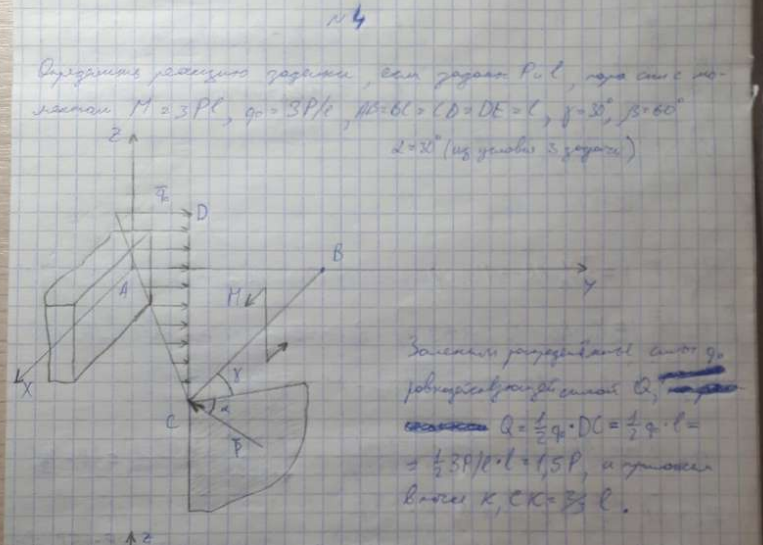 №4
Определить реакцию заделки, если заданы P и l, пара сил с мо-
ментом M = 3Pl, q₀ = 3P/l, AB=BC=CD=DE=l, γ=30°, β=60°
α=30° (из условия 3 задачи)
Z
q₀
D
B
A
M
Y
X
γ
C
α
P̄
Заменим распределённые силы q₀
равнодействующей силой Q,
Q = ½q₀·DC = ½q₀·l =
= ½3P/l·l = 1,5P, и приложем
в точке K, CK=⅔l.
Z